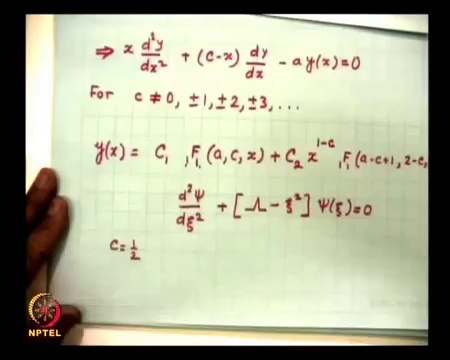 ⇒ x d²y/dx² + (c-x) dy/dx - a y(x) = 0
For c ≠ 0, ±1, ±2, ±3, ...
y(x) = C₁ ₁F₁(a,c,x) + C₂ x^{1-c} ₁F₁(a-c+1, 2-c,
d²Ψ/dξ² + [Λ - ξ²] Ψ(ξ) = 0
c = 1/2
NPTEL